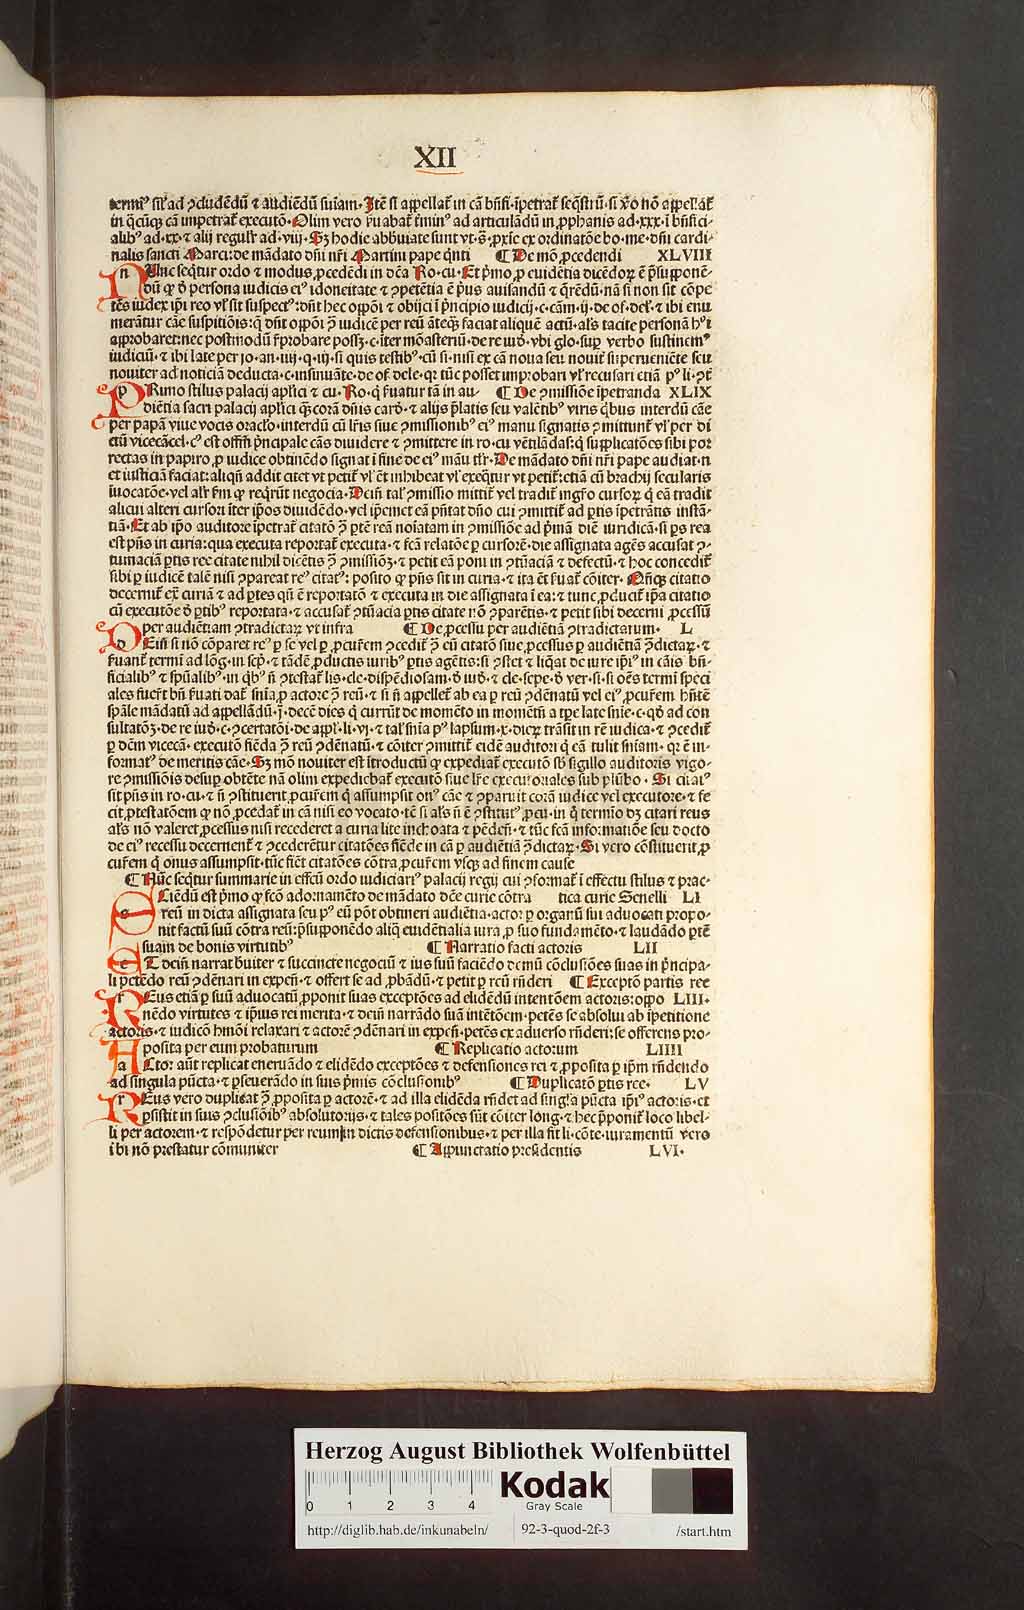 XII
termi⁹ sil̃ ad ꝯcludẽdũ ⁊ audiẽdũ sn̄iam. Itẽ si appellat̃ in cã bñfi. ĩpetrat̃ seq̃strũ. si ṽo nõ appel̃lat̃
in q̃cũqꝫ cã impetrat̃ executõ. Olim vero ad articulãdũ in ꝓphanis ad .xxx. ĩ bñfici-
alibꝰ ad .xx. ⁊ alij regulr̃ ad .viij. Sꝫ hodie abbuiate sunt vt .s̃. ꝓxĩe ex ordinatõe bo. me. dñi cardi-
nalis sancti Marci: de mãdato dñi nr̃i Martini pape qnti ¶ De mõ ꝓcedendi XLVIII
Nũc seqt̃ur ordo ⁊ modus ꝓcedẽdi in dc̃a Ro. cu. Et p̃mo ꝓ euidẽtia dicẽdoꝝ ẽ p̃supponẽ-
dũ ꝙ persona iudicis eiꝰ idoneitate ⁊ ꝯpetẽtia ẽ p̃us auisandũ ⁊ q̃rẽdũ. nã si non sit cõpe
tẽs iudex ip̃i reo vl̃ sit suspectꝰ: dñt hec oppõi ⁊ obijci ĩ p̃ncipio iudicij. c. cãm. ij. de of. del̃. ⁊ ibi enu
merãtur cãe suspitiõis: q̃ dñt oppõi ꝯ̃ iudicẽ per reũ ãteqꝫ faciat aliquẽ actũ. al̃s tacite personã
approbaret: nec postmodũ r̃probare possꝫ. c. ĩter mõasteriũ. de re iud. vbi glo. sup̱ verbo sustinemꝰ
iudiciũ. ⁊ ibi late per jo. an. iiij. q. iij. si quis testibꝰ. cũ si. nisi ex cã noua seu nouit̃ superueniẽte seu
nouiter ad noticiã deducta. c. insinuãte. de of. dele. q: tũc posset improbari vl̃ recusari etiã
PRimo stilus palacij apl̃ici ⁊ cu. Ro. q̃ s̃uatur tã in au ¶ De ꝯmissiõe ĩpetranda XLIX
diẽtia sacri palacij apl̃ici q̃ corã dñis card. ⁊ alijs p̃latis seu valẽtibꝰ viris q̃bus interdũ cãe
per papã viue vocis oracl̃o. interdũ cũ lr̃is siue ꝯmissionibꝰ eiꝰ manu signatis ꝯmittunt̃ vl̃ per di
ctũ vicecãcel. cꝰ est offm̃ p̃ncipale cãs diuidere ⁊ ꝯmittere in ro. cu. vẽtilãdas: q̃ supplicatões sibi por
rectas in papiro ꝓ iudice obtinẽdo signat ĩ fine de eiꝰ mãu tlr̃. De mãdato dñi nr̃i pape audiat. n
et iusticiã faciat: aliqñ addit citet vt petit̃ vl̃ ẽt inhibeat vl̃ exeq̃tur vt petit̃: etiã cũ brachij secularis
ĩuocatõe. vel alr̃ s̃m ꝙ req̃rũt negocia. Deiñ tal̃ ꝯmissio mittit̃ vel tradit̃ mg̃ro cursoꝝ q̃ eã tradit
alicui alteri cursori ĩter ip̃os diuidẽdo. vel ip̃emet eã p̃ñtat dño cui ꝯmittit̃ ad ꝑtis ĩpetrãtis instã-
tiã. Et ab ip̃o auditore ĩpetrat̃ citatõ ꝯ̃ ptẽ reã noĩatam in ꝯmissiõe ad p̃mã diẽ iuridicã. si ꝑs rea
est p̃ñs in curia: qua executa reportat̃ executa. ⁊ fcã relatõe ꝑ cursorẽ. die assignata agẽs accusat ꝯ-
tumaciã ꝑtis ree citate nihil dicẽtis ꝯ̃ ꝯmissiõꝫ. ⁊ petit eã poni in ꝯtũaciã ⁊ defectũ. ⁊ hoc concedit̃
sibi ꝑ iudicẽ talẽ nisi ꝯpareat reꝰ citatꝰ: posito ꝙ p̃ñs sit in curia. ⁊ ita ẽt s̃uat̃ cõiter. Añqꝫ citatio
decernit̃ ex̃ curiã ⁊ ad ꝑtes qñ ẽ reportatõ ⁊ executa in die assignata ĩ ea: ⁊ tunc ꝓducit̃ ip̃a citatio
cũ executõe ꝑtibꝰ reportata. ⁊ accusat̃ ꝯtũacia ꝑtis citate nõ ꝯparẽtis. ⁊ petit sibi decerni ꝓcessũ
per audiẽtiam ꝯtradictaꝝ vt infra ¶ De ꝓcessu per audiẽtiã ꝯtradictarum. L
DEiñ si nõ cõparet reꝰ ꝑ se vel ꝑ ꝓcur̃em ꝯcedit̃ ꝯ̃ eũ citatõ siue ꝓcessus ꝑ audiẽtiã ꝯ̃dictaꝝ. ⁊
s̃uant̃ termĩ ad lõg. ĩn scp̃. ⁊ tãdẽ ꝓductis iuribꝰ ꝑtis agẽtis: si ꝯstet ⁊ liq̃at de iure ip̃iꝰ in cãis bñ-
ficialibꝰ ⁊ sp̃ualibꝰ. in q̃bꝰ ñ ꝯtestat̃ lis. cle. dispẽdiosam. iud. ⁊ cle. sepe. ver. si. si oẽs termĩ speci
ales fuer̃t bñ s̃uati dat̃ sñia ꝓ actore ꝯ̃ reũ. ⁊ si ñ appellet̃ ab ea ꝑ reũ ꝯdẽnatũ vel eiꝰ ꝓcur̃em hñtẽ
sp̃ale mãdatũ ad appellãdũ. ĩ. decẽ dies q̃ currũt de momẽto in momẽtũ a tp̃e late sñie. c. qd ad con
sultatõꝫ. de re iud. c. ꝯcertatõi. de appl̃. li. vj. ⁊ tal̃ sñia pꝰ lapsum .x. dieꝝ trãsit in rẽ iudica. ⁊ ꝯcedit̃
ꝑ dcm̃ vicecã. executõ fiẽda ꝯ̃ reũ ꝯdẽnatũ. ⁊ cõiter ꝯmittit̃ eidẽ auditori q̃ eã tulit sñiam. qr̃ ẽ in-
formatꝰ de meritis cãe. Sꝫ mõ nouiter est ĩtroductũ ꝙ expediat̃ executõ sb̃ sigillo auditoris vigo-
re ꝯmissiõis desuꝑ obtẽte nã olim expediebat̃ executõ siue lr̃e executoriales sub plũbo. Si citatꝰ
sit p̃ñs in ro. cu. ⁊ ñ ꝯstituerit ꝓcur̃em q̃ assumpsit onꝰ cãe ⁊ ꝯparuit corã iudice vel executore. ⁊ fe
cit ꝓtestatõem ꝙ nõ ꝓcedat̃ in cã nisi eo vocato. tẽ si al̃s ñ ẽ ꝯstitutꝰ ꝓcu. in q̃ termĩo dꝫ citari reus
al̃s nõ valeret ꝓcessus nisi recederet a curia lite inchoata ⁊ pẽdeñ. ⁊ tũc fcã informatiõe seu docto
de eiꝰ recessu decernent̃ ⁊ ꝯcederẽtur citatões fiẽde in cã ꝑ audiẽtiã ꝯ̃dictaꝝ. Si vero cõstituerit ꝓ
cur̃em q̃ onus assumpsit. tũc fiẽt citatões cõtra ꝓcur̃em vsqꝫ ad finem cause
¶ Nũc seq̃tur summarie in effcũ ordo iudiciariꝰ palacij regij cui ꝯformat̃ ĩ effectu stilus ⁊ prac-
CLiẽdũ est p̃mo ꝙ fcõ adornamẽto de mãdato dc̃e curie cõtra tica curie Senelli LI
reũ in dicta assignata seu pꝰ eũ põt obtineri audiẽtia. actor ꝑ organũ sui aduocati propo-
nit factũ suũ cõtra reũ: p̃supponẽdo aliq̃ euidẽtialia iura ꝓ suo fundamẽto. ⁊ laudãdo ꝑtẽ
suam de bonis virtutibꝰ ¶ Narratio facti actoris LII
ET deiñ narrat buiter ⁊ succincte negociũ ⁊ ius suũ faciẽdo demũ cõclusiões suas in p̃ncipa-
li petẽdo reũ ꝯdẽnari in expeñ. ⁊ offert se ad ꝓbãdũ. ⁊ petit ꝑ reũ rñderi ¶ Exceptõ partis ree
REus etiã ꝑ suũ aduocatũ ꝓponit suas exceptões ad elidẽdũ intentõem actoris: oppo LIII.
nẽdo virtutes ⁊ ip̃ius rei merita. ⁊ deiñ narrãdo suã intẽtõem. petẽs se absolui ab ĩpetitione
actoris. ⁊ iudicõ hmõi relaxari ⁊ actorẽ ꝯdẽnari in expeñ. petẽs ex aduerso rñderi: se offerens pro-
posita per eum probaturum ¶ Replicatio actorum LIIII
ACtor aũt replicat eneruãdo ⁊ elidẽdo exceptões ⁊ defensiones rei ⁊ ꝓposita ꝑ ip̃m rñdẽdo
ad singula pũcta. ⁊ ꝑseuerãdo in suis p̃mis cõclusionibꝰ ¶ Duplicatõ ꝑtis ree. LV
REus vero duplicat ꝯ̃ ꝓposita ꝑ actorẽ. ⁊ ad illa elidẽda rñdet ad singl̃a pũcta ip̃iꝰ actoris. et
ꝑsistit in suis ꝯclusiõibꝰ absolutorijs. ⁊ tales positões sũt cõiter long. ⁊ hec p̃ponit̃ loco libel-
li per actorem. ⁊ respõdetur per reum in dictis defensionibus. ⁊ per illa fit li. cõte. iuramentũ vero
ĩbi nõ prestatur cõmuniter ¶ Appunctatio presidentis LVI.
Herzog August Bibliothek Wolfenbüttel
0 1 2 3 4
Kodak
Gray Scale
http://diglib.hab.de/inkunabeln/ 92-3-quod-2f-3 /start.htm